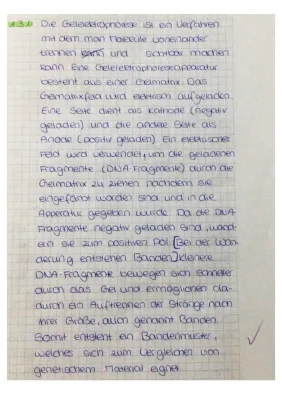 1.3.) Die Gelelektrophorese ist ein Verfahren
mit dem man Moleküle voneinander
trennen kann und sichtbar machen
kann. Eine Gelelektrophoreseapparatur
besteht aus einer Gelmatrix. Das
Gelmatrixfeld wird elektrisch aufgeladen.
Eine Seite dient als Kathode (negativ
geladen) und die andere Seite als
Anode (positiv geladen). Ein elektrisches
Feld wird verwendet, um die geladenen
Fragmente (DNA-Fragmente) durch die
Gelmatrix zu ziehen nachdem sie
eingefärbt worden sind und in die
Apperatur gegeben wurde. Da die DNA-
Fragmente negativ geladen sind, wand-
ern sie zum positiven Pol. [Bei der Wan-
derung entstehen Banden] kleinere
DNA-Fragmente bewegen sich schneller
durch das Gel und ermöglichen da-
durch ein Auftrennen der Stränge nach
ihrer Größe, auch genannt Banden.
Somit entsteht ein Bandenmuster,
welches sich zum Vergleichen von
genetischem Material eignet.